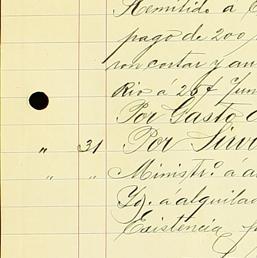 Remitido a
pago de 200
ron cortar y an
Rio á 25¢ Jun
Por Gasto
" 31 Por Sirv
" " Ministrº á
Yd. á alquilad
Existencia